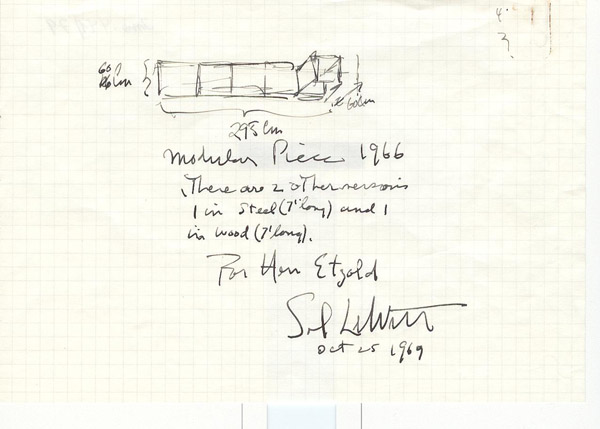 4"
60
60cm
295cm
Modular Piece 1966
There are 2 other versions
1 in Steel (7' long) and 1
in wood (7' long).
For Herr Etzold
Sol LeWitt
Oct 25 1969